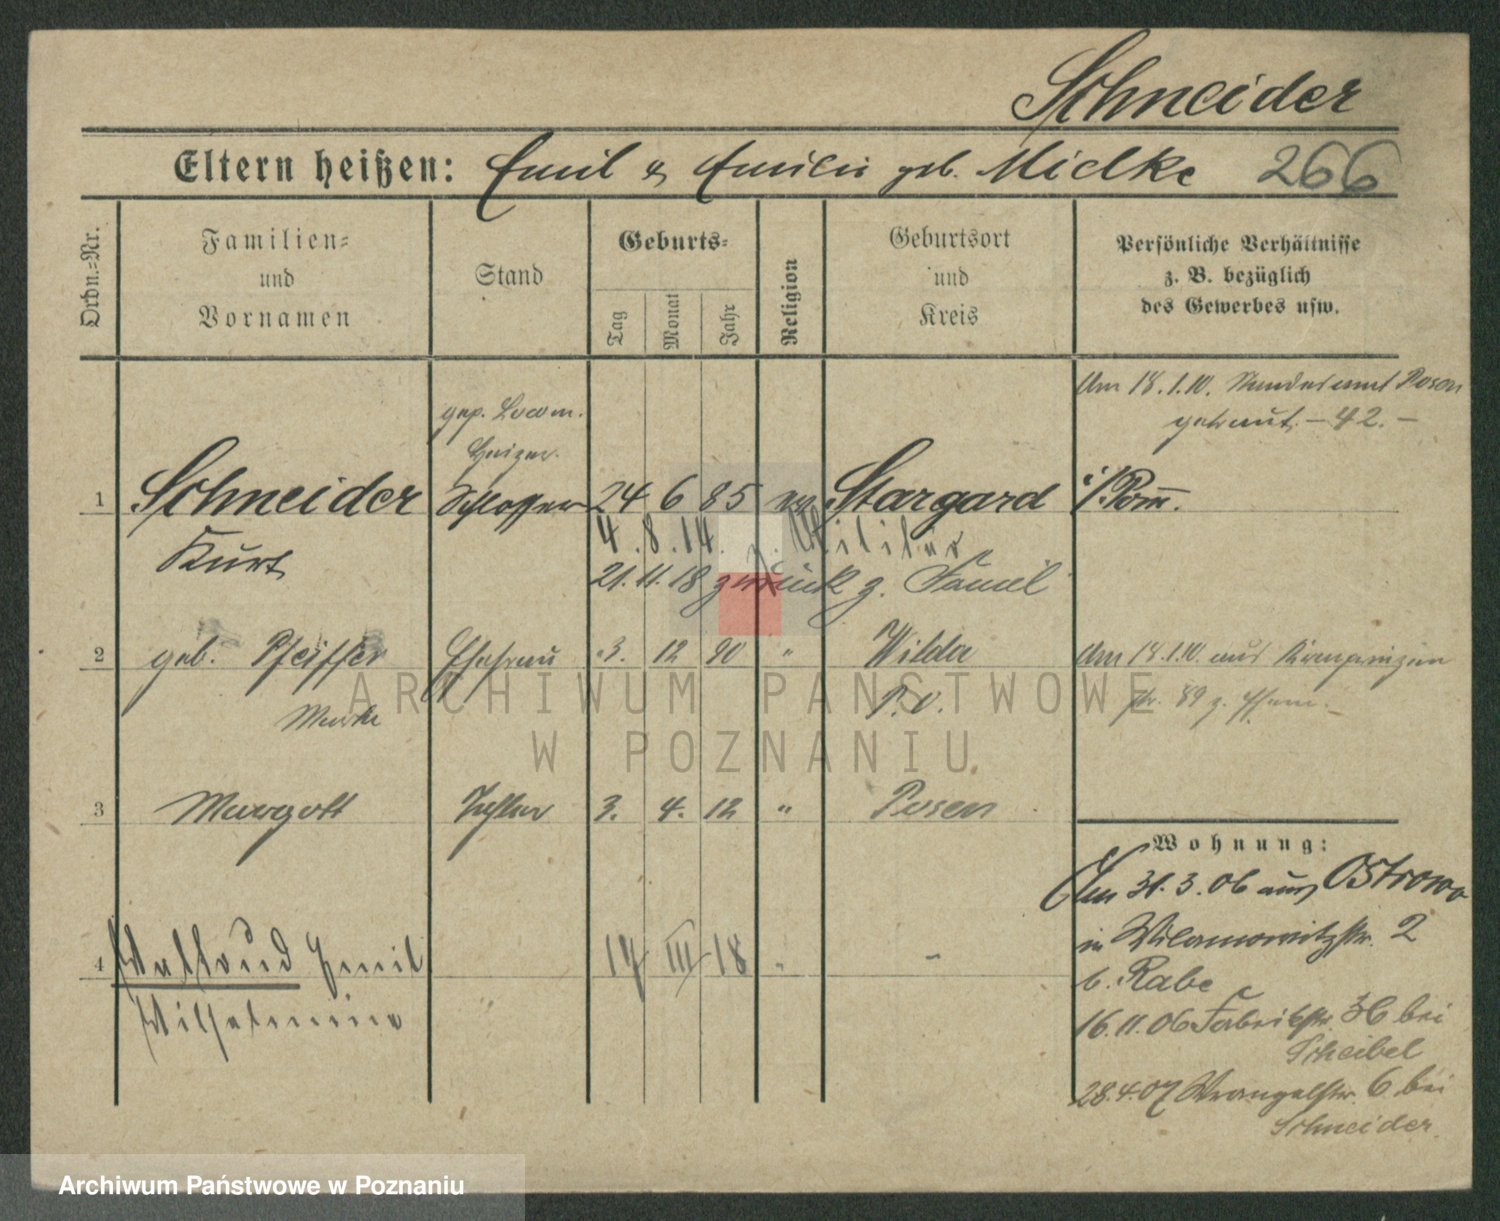 Schneider
Eltern heißen: Emil & Emilie geb. Mielke 266
Ordn.=Nr.
Familien=
und
Vornamen
Stand
Geburts=
Tag
Monat
Jahr
Religion
Geburtsort
und
Kreis
Persönliche Verhältnisse
z. B. bezüglich
des Gewerbes usw.
Am 18.1.10. Standesamt Posen
getraut. – 42. –
gep. Locom.
Heizer.
1 Schneider Schlosser 24 6 85 ev. Stargard i/Pom.
Kurt
4.8.14. z. Militär
21.11.18 zurück z. Famil
2 geb. Pfeiffer Ehefrau 3. 12 90 " Wilda
P. O.
Am 18.1.10. aus
str. 89 z. Ehem.
3 Margott Tochter 3. 4. 12 " Posen
4 Waltraud Emil 17 III 18 " "
Wilhelmine
Wohnung:
Am 31.3.06 aus Ostrowo
in Wilamowitzstr. 2
b. Rabe
16.11.06 Fabrikstr. 36 bei
Scheibel
28.4.07 Wrangelstr. 6 bei
Schneider
ARCHIWUM PAŃSTWOWE
W POZNANIU
Archiwum Państwowe w Poznaniu